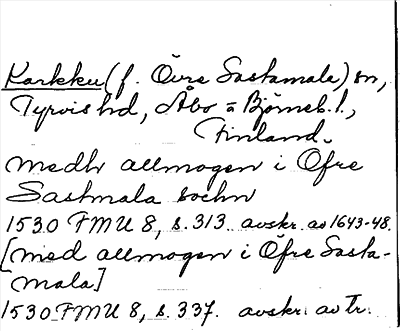 Karkku (f. Övre Sastamala) sn,
Tyrvis hd, Åbo = Björneb. l.,
Finland.
medh allmogen i Öfre
Sastmala sochn
1530 FMU 8, s. 313 avskr. av 1643-48.
[med allmogen i Öfre Sasta-
mala]
1530 FMU 8, s. 337. avskr. av Tr.